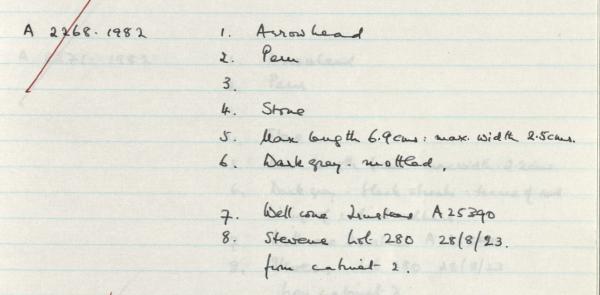 A 2268.1982 1. Arrowhead
2. Peru
3.
4. Stone
5. Max length 6.9cms: max. width 2.5cms.
6. Dark grey. mottled.
7. Wellcome A25390
8. Stevens Lot 280 28/8/23.
from cabinet 2.